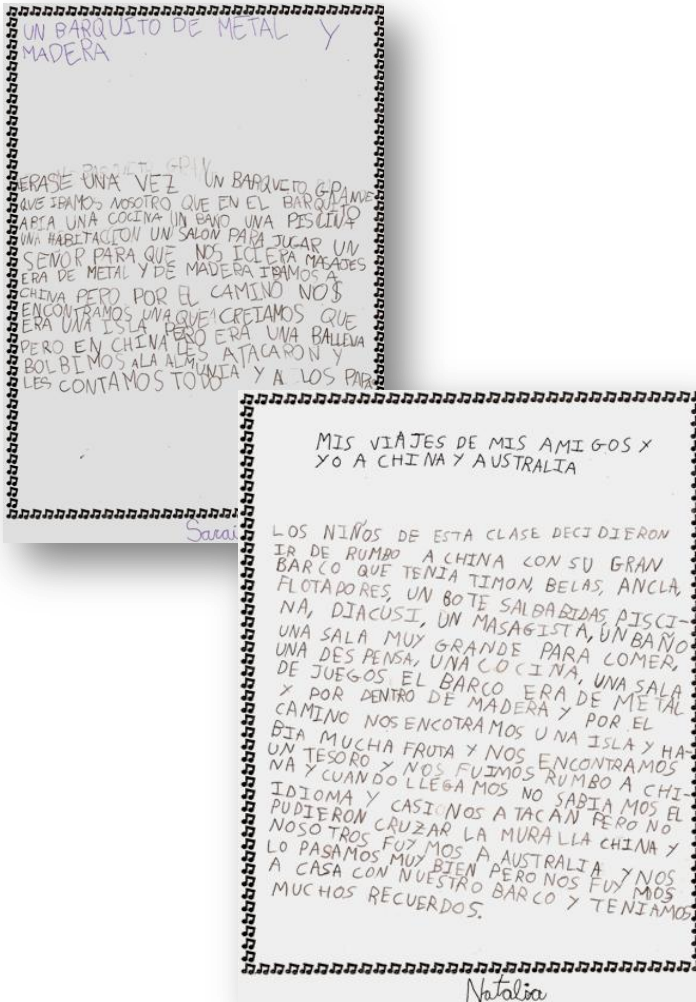 UN BARQUITO DE METAL Y
MADERA
ERASE UNA VEZ UN BARQUITO GRANDE
QUE IBAMOS NOSOTRO QUE EN EL BARQUITO
ABIA UNA COCINA UN BAÑO UNA PISCINA
UNA HABITACION UN SALON PARA JUGAR UN
SEÑOR PARA QUE NOS ICIERA MASAJES
ERA DE METAL Y DE MADERA IBAMOS A
CHINA PERO POR EL CAMINO NOS
ENCONTRAMOS UNA QUE CREIAMOS QUE
ERA UNA ISLA PERO ERA UNA BALLENA
PERO EN CHINA LES ATACARON Y
BOLBIMOS ALA ALMUNIA Y A LOS
LES CONTAMOS TODO
Sarai
MIS VIAJES DE MIS AMIGOS Y
YO A CHINA Y AUSTRALIA
LOS NIÑOS DE ESTA CLASE DECIDIERON
IR DE RUMBO A CHINA CON SU GRAN
BARCO QUE TENIA TIMON, BELAS, ANCLA,
FLOTADORES, UN BOTE SALBABIDAS, PISCI-
NA, DIACUSI, UN MASAGISTA, UN BAÑO
UNA SALA MUY GRANDE PARA COMER,
UNA DESPENSA, UNA COCINA, UNA SALA
DE JUEGOS EL BARCO ERA DE METAL
Y POR DENTRO DE MADERA Y POR EL
CAMINO NOS ENCOTRAMOS UNA ISLA Y HA-
BIA MUCHA FRUTA Y NOS ENCONTRAMOS
UN TESORO Y NOS FUIMOS RUMBO A CHI-
NA Y CUANDO LLEGAMOS NO SABIAMOS EL
IDIOMA Y CASI NOS ATACAN PERO NO
PUDIERON CRUZAR LA MURALLA CHINA Y
NOSOTROS FUYMOS A AUSTRALIA Y NOS
LO PASAMOS MUY BIEN PERO NOS FUYMOS
A CASA CON NUESTRO BARCO Y TENIAMOS
MUCHOS RECUERDOS.
Natalia